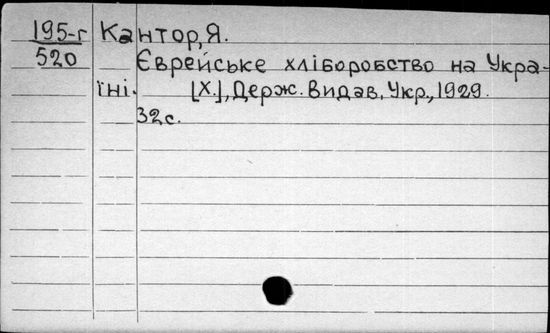 195-г Кантор, Я.
520
Єврейське хліборобство на Укра-
їні. [Х.], Держ. Видав. Укр., 1929.
32 с.